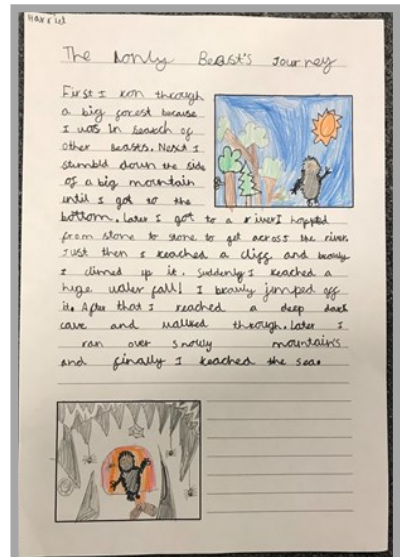 Harriet
The lonly Beast's Journey
First I ran through
a big forest because
I was in search of
other Beasts. Next I
stumbld down the side
of a big mountain
until I got to the
bottom. Later I got to a river I hoppted
from stone to stone to get across the river.
Just then I reached a cliff and bravly
I climed up it. Suddenly I reached a
huge water fall! I bravly jumped off
it. After that I reached a deep dark
cave and walked through. Later I
ran over snowy mountains
and finally I reached the sea.